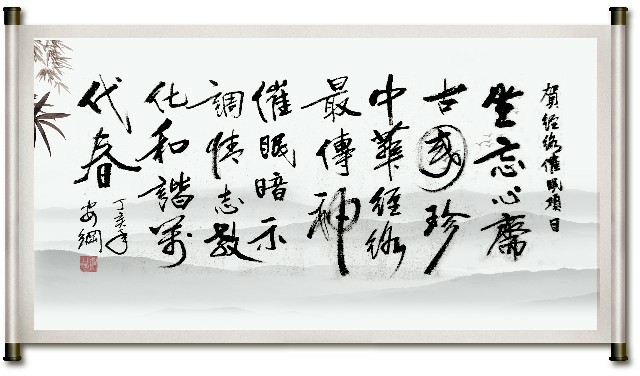 賀經絡催眠項目
坐忘心齋
古國珍
中華經絡
最傳神
催眠暗示
調情志教
化和諧萬
代春
丁亥年
安綱